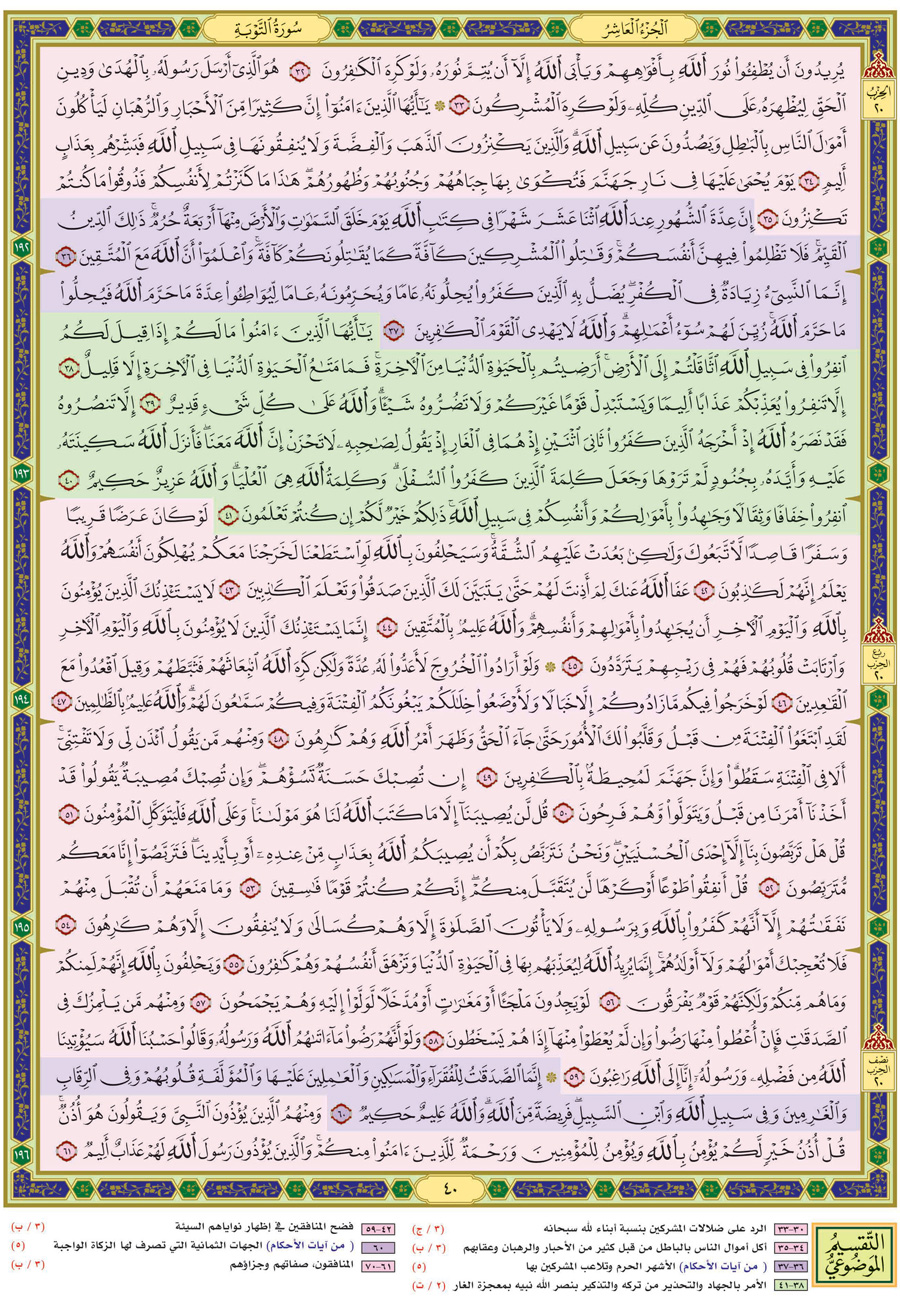 الجزء العاشر
سورة التوبة
يُرِيدُونَ أَن يُطْفِـُٔوا۟ نُورَ ٱللَّهِ بِأَفْوَٰهِهِمْ وَيَأْبَى ٱللَّهُ إِلَّآ أَن يُتِمَّ نُورَهُۥ وَلَوْ كَرِهَ ٱلْكَٰفِرُونَ ٣٢ هُوَ ٱلَّذِىٓ أَرْسَلَ رَسُولَهُۥ بِٱلْهُدَىٰ وَدِينِ
ٱلْحَقِّ لِيُظْهِرَهُۥ عَلَى ٱلدِّينِ كُلِّهِۦ وَلَوْ كَرِهَ ٱلْمُشْرِكُونَ ٣٣ ۞ يَٰٓأَيُّهَا ٱلَّذِينَ ءَامَنُوٓا۟ إِنَّ كَثِيرًا مِّنَ ٱلْأَحْبَارِ وَٱلرُّهْبَانِ لَيَأْكُلُونَ
أَمْوَٰلَ ٱلنَّاسِ بِٱلْبَٰطِلِ وَيَصُدُّونَ عَن سَبِيلِ ٱللَّهِ ۗ وَٱلَّذِينَ يَكْنِزُونَ ٱلذَّهَبَ وَٱلْفِضَّةَ وَلَا يُنفِقُونَهَا فِى سَبِيلِ ٱللَّهِ فَبَشِّرْهُم بِعَذَابٍ
أَلِيمٍ ٣٤ يَوْمَ يُحْمَىٰ عَلَيْهَا فِى نَارِ جَهَنَّمَ فَتُكْوَىٰ بِهَا جِبَاهُهُمْ وَجُنُوبُهُمْ وَظُهُورُهُمْ ۖ هَٰذَا مَا كَنَزْتُمْ لِأَنفُسِكُمْ فَذُوقُوا۟ مَا كُنتُمْ
تَكْنِزُونَ ٣٥ إِنَّ عِدَّةَ ٱلشُّهُورِ عِندَ ٱللَّهِ ٱثْنَا عَشَرَ شَهْرًا فِى كِتَٰبِ ٱللَّهِ يَوْمَ خَلَقَ ٱلسَّمَٰوَٰتِ وَٱلْأَرْضَ مِنْهَآ أَرْبَعَةٌ حُرُمٌ ۚ ذَٰلِكَ ٱلدِّينُ
ٱلْقَيِّمُ ۚ فَلَا تَظْلِمُوا۟ فِيهِنَّ أَنفُسَكُمْ ۚ وَقَٰتِلُوا۟ ٱلْمُشْرِكِينَ كَآفَّةً كَمَا يُقَٰتِلُونَكُمْ كَآفَّةً ۚ وَٱعْلَمُوٓا۟ أَنَّ ٱللَّهَ مَعَ ٱلْمُتَّقِينَ ٣٦
إِنَّمَا ٱلنَّسِىٓءُ زِيَادَةٌ فِى ٱلْكُفْرِ ۖ يُضَلُّ بِهِ ٱلَّذِينَ كَفَرُوا۟ يُحِلُّونَهُۥ عَامًا وَيُحَرِّمُونَهُۥ عَامًا لِّيُوَاطِـُٔوا۟ عِدَّةَ مَا حَرَّمَ ٱللَّهُ فَيُحِلُّوا۟
مَا حَرَّمَ ٱللَّهُ ۚ زُيِّنَ لَهُمْ سُوٓءُ أَعْمَٰلِهِمْ ۗ وَٱللَّهُ لَا يَهْدِى ٱلْقَوْمَ ٱلْكَٰفِرِينَ ٣٧ يَٰٓأَيُّهَا ٱلَّذِينَ ءَامَنُوا۟ مَا لَكُمْ إِذَا قِيلَ لَكُمُ
ٱنفِرُوا۟ فِى سَبِيلِ ٱللَّهِ ٱثَّاقَلْتُمْ إِلَى ٱلْأَرْضِ ۚ أَرَضِيتُم بِٱلْحَيَوٰةِ ٱلدُّنْيَا مِنَ ٱلْءَاخِرَةِ ۚ فَمَا مَتَٰعُ ٱلْحَيَوٰةِ ٱلدُّنْيَا فِى ٱلْءَاخِرَةِ إِلَّا قَلِيلٌ ٣٨
إِلَّا تَنفِرُوا۟ يُعَذِّبْكُمْ عَذَابًا أَلِيمًا وَيَسْتَبْدِلْ قَوْمًا غَيْرَكُمْ وَلَا تَضُرُّوهُ شَيْـًٔا ۗ وَٱللَّهُ عَلَىٰ كُلِّ شَىْءٍ قَدِيرٌ ٣٩ إِلَّا تَنصُرُوهُ
فَقَدْ نَصَرَهُ ٱللَّهُ إِذْ أَخْرَجَهُ ٱلَّذِينَ كَفَرُوا۟ ثَانِىَ ٱثْنَيْنِ إِذْ هُمَا فِى ٱلْغَارِ إِذْ يَقُولُ لِصَٰحِبِهِۦ لَا تَحْزَنْ إِنَّ ٱللَّهَ مَعَنَا ۖ فَأَنزَلَ ٱللَّهُ سَكِينَتَهُۥ
عَلَيْهِ وَأَيَّدَهُۥ بِجُنُودٍ لَّمْ تَرَوْهَا وَجَعَلَ كَلِمَةَ ٱلَّذِينَ كَفَرُوا۟ ٱلسُّفْلَىٰ ۗ وَكَلِمَةُ ٱللَّهِ هِىَ ٱلْعُلْيَا ۗ وَٱللَّهُ عَزِيزٌ حَكِيمٌ ٤٠
ٱنفِرُوا۟ خِفَافًا وَثِقَالًا وَجَٰهِدُوا۟ بِأَمْوَٰلِكُمْ وَأَنفُسِكُمْ فِى سَبِيلِ ٱللَّهِ ۚ ذَٰلِكُمْ خَيْرٌ لَّكُمْ إِن كُنتُمْ تَعْلَمُونَ ٤١ لَوْ كَانَ عَرَضًا قَرِيبًا
وَسَفَرًا قَاصِدًا لَّٱتَّبَعُوكَ وَلَٰكِنۢ بَعُدَتْ عَلَيْهِمُ ٱلشُّقَّةُ ۚ وَسَيَحْلِفُونَ بِٱللَّهِ لَوِ ٱسْتَطَعْنَا لَخَرَجْنَا مَعَكُمْ يُهْلِكُونَ أَنفُسَهُمْ وَٱللَّهُ
يَعْلَمُ إِنَّهُمْ لَكَٰذِبُونَ ٤٢ عَفَا ٱللَّهُ عَنكَ لِمَ أَذِنتَ لَهُمْ حَتَّىٰ يَتَبَيَّنَ لَكَ ٱلَّذِينَ صَدَقُوا۟ وَتَعْلَمَ ٱلْكَٰذِبِينَ ٤٣ لَا يَسْتَـْٔذِنُكَ ٱلَّذِينَ يُؤْمِنُونَ
بِٱللَّهِ وَٱلْيَوْمِ ٱلْءَاخِرِ أَن يُجَٰهِدُوا۟ بِأَمْوَٰلِهِمْ وَأَنفُسِهِمْ ۗ وَٱللَّهُ عَلِيمٌۢ بِٱلْمُتَّقِينَ ٤٤ إِنَّمَا يَسْتَـْٔذِنُكَ ٱلَّذِينَ لَا يُؤْمِنُونَ بِٱللَّهِ وَٱلْيَوْمِ ٱلْءَاخِرِ
وَٱرْتَابَتْ قُلُوبُهُمْ فَهُمْ فِى رَيْبِهِمْ يَتَرَدَّدُونَ ٤٥ ۞ وَلَوْ أَرَادُوا۟ ٱلْخُرُوجَ لَأَعَدُّوا۟ لَهُۥ عُدَّةً وَلَٰكِن كَرِهَ ٱللَّهُ ٱنۢبِعَاثَهُمْ فَثَبَّطَهُمْ وَقِيلَ ٱقْعُدُوا۟ مَعَ
ٱلْقَٰعِدِينَ ٤٦ لَوْ خَرَجُوا۟ فِيكُم مَّا زَادُوكُمْ إِلَّا خَبَالًا وَلَأَوْضَعُوا۟ خِلَٰلَكُمْ يَبْغُونَكُمُ ٱلْفِتْنَةَ وَفِيكُمْ سَمَّٰعُونَ لَهُمْ ۗ وَٱللَّهُ عَلِيمٌۢ بِٱلظَّٰلِمِينَ ٤٧
لَقَدِ ٱبْتَغَوُا۟ ٱلْفِتْنَةَ مِن قَبْلُ وَقَلَّبُوا۟ لَكَ ٱلْأُمُورَ حَتَّىٰ جَآءَ ٱلْحَقُّ وَظَهَرَ أَمْرُ ٱللَّهِ وَهُمْ كَٰرِهُونَ ٤٨ وَمِنْهُم مَّن يَقُولُ ٱئْذَن لِّى وَلَا تَفْتِنِّىٓ ۚ
أَلَا فِى ٱلْفِتْنَةِ سَقَطُوا۟ ۗ وَإِنَّ جَهَنَّمَ لَمُحِيطَةٌۢ بِٱلْكَٰفِرِينَ ٤٩ إِن تُصِبْكَ حَسَنَةٌ تَسُؤْهُمْ ۖ وَإِن تُصِبْكَ مُصِيبَةٌ يَقُولُوا۟ قَدْ
أَخَذْنَآ أَمْرَنَا مِن قَبْلُ وَيَتَوَلَّوا۟ وَّهُمْ فَرِحُونَ ٥٠ قُل لَّن يُصِيبَنَآ إِلَّا مَا كَتَبَ ٱللَّهُ لَنَا هُوَ مَوْلَىٰنَا ۚ وَعَلَى ٱللَّهِ فَلْيَتَوَكَّلِ ٱلْمُؤْمِنُونَ ٥١
قُلْ هَلْ تَرَبَّصُونَ بِنَآ إِلَّآ إِحْدَى ٱلْحُسْنَيَيْنِ ۖ وَنَحْنُ نَتَرَبَّصُ بِكُمْ أَن يُصِيبَكُمُ ٱللَّهُ بِعَذَابٍ مِّنْ عِندِهِۦٓ أَوْ بِأَيْدِينَا ۖ فَتَرَبَّصُوٓا۟ إِنَّا مَعَكُم
مُّتَرَبِّصُونَ ٥٢ قُلْ أَنفِقُوا۟ طَوْعًا أَوْ كَرْهًا لَّن يُتَقَبَّلَ مِنكُمْ ۖ إِنَّكُمْ كُنتُمْ قَوْمًا فَٰسِقِينَ ٥٣ وَمَا مَنَعَهُمْ أَن تُقْبَلَ مِنْهُمْ
نَفَقَٰتُهُمْ إِلَّآ أَنَّهُمْ كَفَرُوا۟ بِٱللَّهِ وَبِرَسُولِهِۦ وَلَا يَأْتُونَ ٱلصَّلَوٰةَ إِلَّا وَهُمْ كُسَالَىٰ وَلَا يُنفِقُونَ إِلَّا وَهُمْ كَٰرِهُونَ ٥٤
فَلَا تُعْجِبْكَ أَمْوَٰلُهُمْ وَلَآ أَوْلَٰدُهُمْ ۚ إِنَّمَا يُرِيدُ ٱللَّهُ لِيُعَذِّبَهُم بِهَا فِى ٱلْحَيَوٰةِ ٱلدُّنْيَا وَتَزْهَقَ أَنفُسُهُمْ وَهُمْ كَٰفِرُونَ ٥٥ وَيَحْلِفُونَ بِٱللَّهِ إِنَّهُمْ لَمِنكُمْ
وَمَا هُم مِّنكُمْ وَلَٰكِنَّهُمْ قَوْمٌ يَفْرَقُونَ ٥٦ لَوْ يَجِدُونَ مَلْجَـًٔا أَوْ مَغَٰرَٰتٍ أَوْ مُدَّخَلًا لَّوَلَّوْا۟ إِلَيْهِ وَهُمْ يَجْمَحُونَ ٥٧ وَمِنْهُم مَّن يَلْمِزُكَ فِى
ٱلصَّدَقَٰتِ فَإِنْ أُعْطُوا۟ مِنْهَا رَضُوا۟ وَإِن لَّمْ يُعْطَوْا۟ مِنْهَآ إِذَا هُمْ يَسْخَطُونَ ٥٨ وَلَوْ أَنَّهُمْ رَضُوا۟ مَآ ءَاتَىٰهُمُ ٱللَّهُ وَرَسُولُهُۥ وَقَالُوا۟ حَسْبُنَا ٱللَّهُ سَيُؤْتِينَا
ٱللَّهُ مِن فَضْلِهِۦ وَرَسُولُهُۥٓ إِنَّآ إِلَى ٱللَّهِ رَٰغِبُونَ ٥٩ ۞ إِنَّمَا ٱلصَّدَقَٰتُ لِلْفُقَرَآءِ وَٱلْمَسَٰكِينِ وَٱلْعَٰمِلِينَ عَلَيْهَا وَٱلْمُؤَلَّفَةِ قُلُوبُهُمْ وَفِى ٱلرِّقَابِ
وَٱلْغَٰرِمِينَ وَفِى سَبِيلِ ٱللَّهِ وَٱبْنِ ٱلسَّبِيلِ ۖ فَرِيضَةً مِّنَ ٱللَّهِ ۗ وَٱللَّهُ عَلِيمٌ حَكِيمٌ ٦٠ وَمِنْهُمُ ٱلَّذِينَ يُؤْذُونَ ٱلنَّبِىَّ وَيَقُولُونَ هُوَ أُذُنٌ ۚ
قُلْ أُذُنُ خَيْرٍ لَّكُمْ يُؤْمِنُ بِٱللَّهِ وَيُؤْمِنُ لِلْمُؤْمِنِينَ وَرَحْمَةٌ لِّلَّذِينَ ءَامَنُوا۟ مِنكُمْ ۚ وَٱلَّذِينَ يُؤْذُونَ رَسُولَ ٱللَّهِ لَهُمْ عَذَابٌ أَلِيمٌ ٦١
الحزب
٢٠
ربع
الحزب
٢٠
نصف
الحزب
٢٠
١٩٢
١٩٣
١٩٤
١٩٥
١٩٦
٤٠
التقسيم
الموضوعي
٣٠-٣٣ الرد على ضلالات المشركين بنسبة أبناء لله سبحانه (٣ / ج)
٣٤-٣٥ أكل أموال الناس بالباطل من قبل كثير من الأحبار والرهبان وعقابهم (٣ / ب)
٣٦-٣٧ ( من آيات الأحكام) الأشهر الحرم وتلاعب المشركين بها (٥)
٣٨-٤١ الأمر بالجهاد والتحذير من تركه والتذكير بنصر الله نبيه بمعجزة الغار (٢ / ت)
٤٢-٥٩ فضح المنافقين في إظهار نواياهم السيئة (٣ / ب)
٦٠ ( من آيات الأحكام) الجهات الثمانية التي تصرف لها الزكاة الواجبة (٥)
٦١-٧٠ المنافقون، صفاتهم وجزاؤهم (٣ / ب)